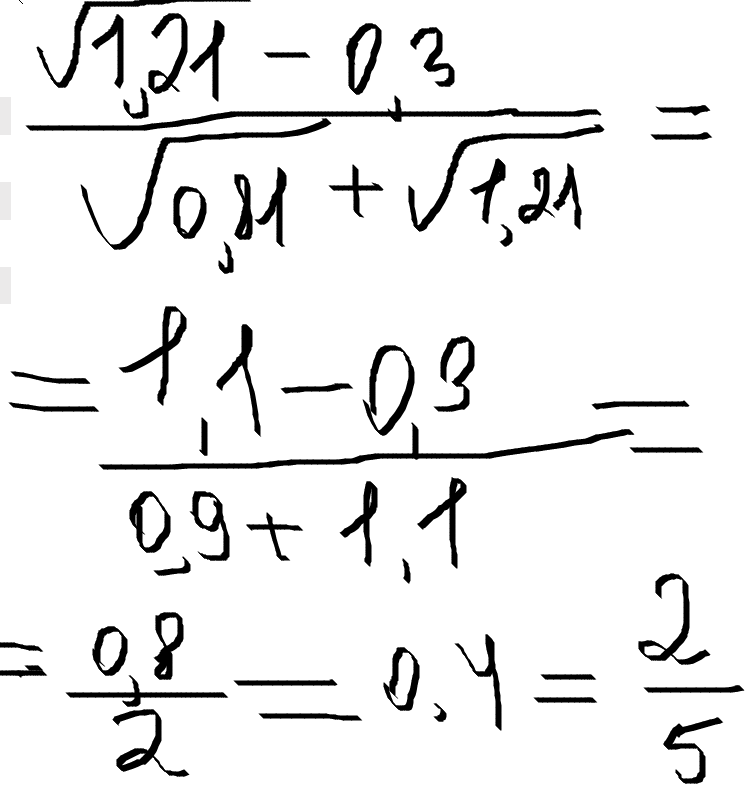 √1,21 - 0,3
√0,81 + √1,21 =
= 1,1 - 0,3
0,9 + 1,1 =
= 0,8 / 2 = 0,4 = 2 / 5